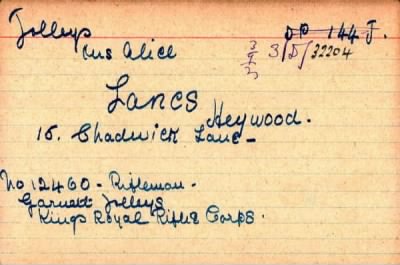 Jolleys
Mrs Alice
DP 144 J.
3/D/32204
Lancs
Heywood.
15. Chadwick Lane -
No 12460 - Rifleman -
Garnett Jolleys
Kings Royal Rifle Corps.